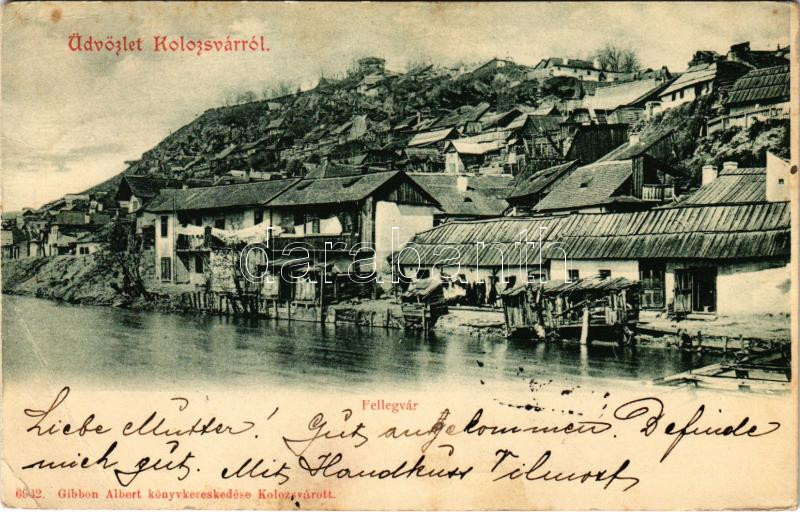 Üdvözlet Kolozsvárról.
darabanth
Fellegvár
Liebe Mutter! Gut angekommen. Definde
mich gut. Mit Handkuss
6962. Gibbon Albert könyvkereskedése Kolozsvárott.